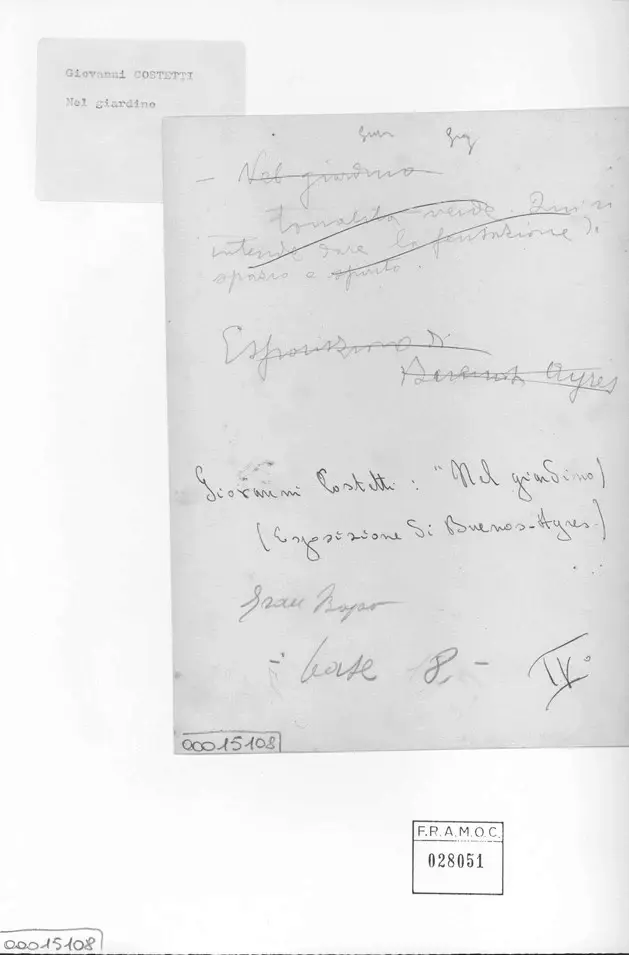 Giovanni COSTETTI
Nel giardino
- Nel giardino
tonalità verde. Qui si
intende dare la fontazione di
spazio e spirito.
Esposizione di
Buenos Ayres
Giovanni Costetti: "Nel giardino)
(Esposizione di Buenos-Ayres)
- base 8, -
IV°
00015108
F.R.A.M.O.C.
028051
00015108